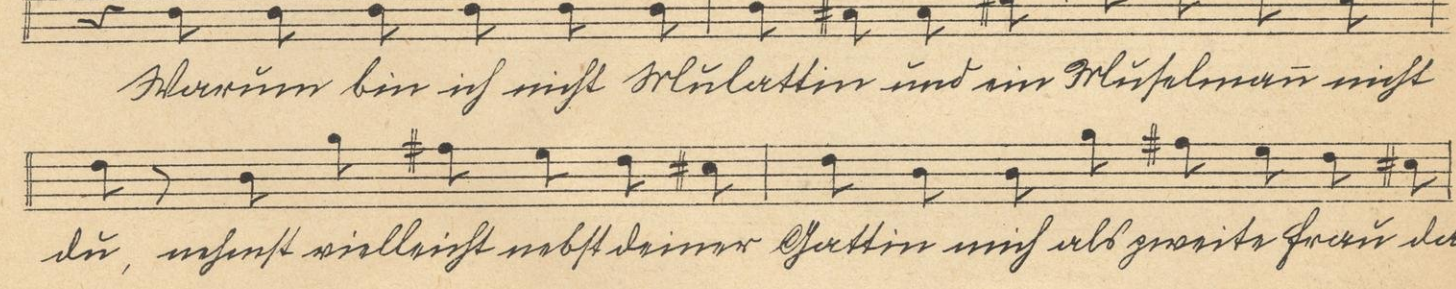 Warum bin ich nicht Mulattin und ein Muselman̄ nicht
du, nehmst vielleicht nebst deiner Gattin mich als zweite Frau da